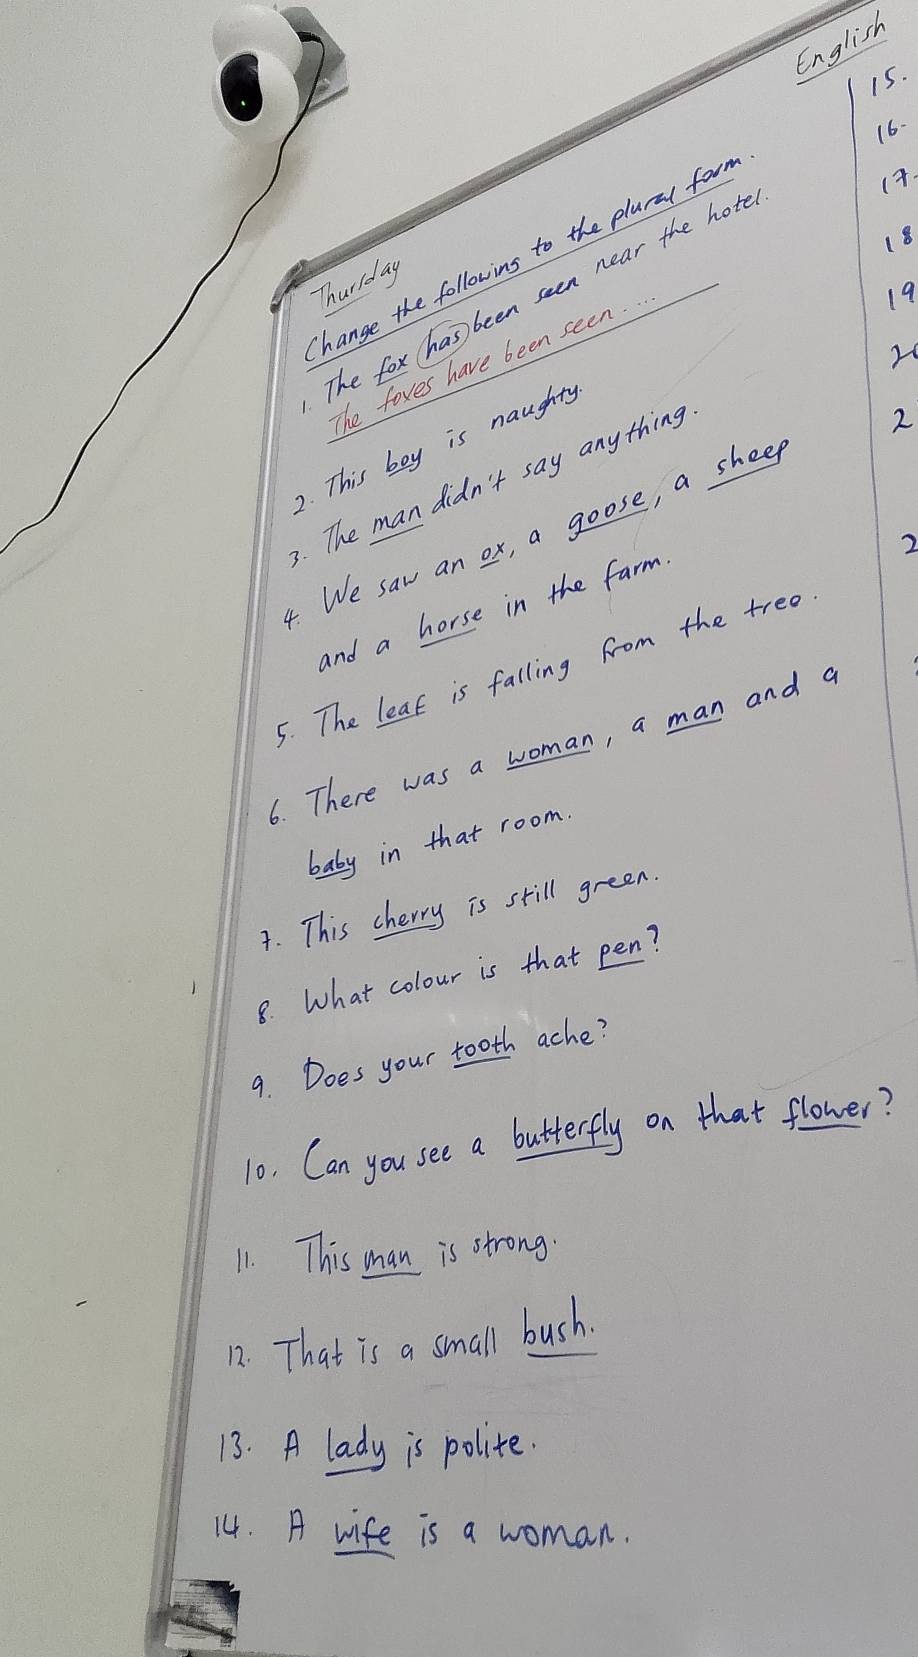 English
Thursday
Change the following to the plural form.
1. The fox has been seen near the hotel.
The foxes have been seen....
2. This boy is naughty.
3. The man didn't say anything.
4. We saw an ox, a goose, a sheep
and a horse in the farm.
5. The leaf is falling from the tree.
6. There was a woman, a man and a
baby in that room.
7. This cherry is still green.
8. What colour is that pen?
9. Does your tooth ache?
10. Can you see a butterfly on that flower?
11. This man is strong.
12. That is a small bush.
13. A lady is polite.
14. A wife is a woman.
15.
16.
17.
18
19
2
2